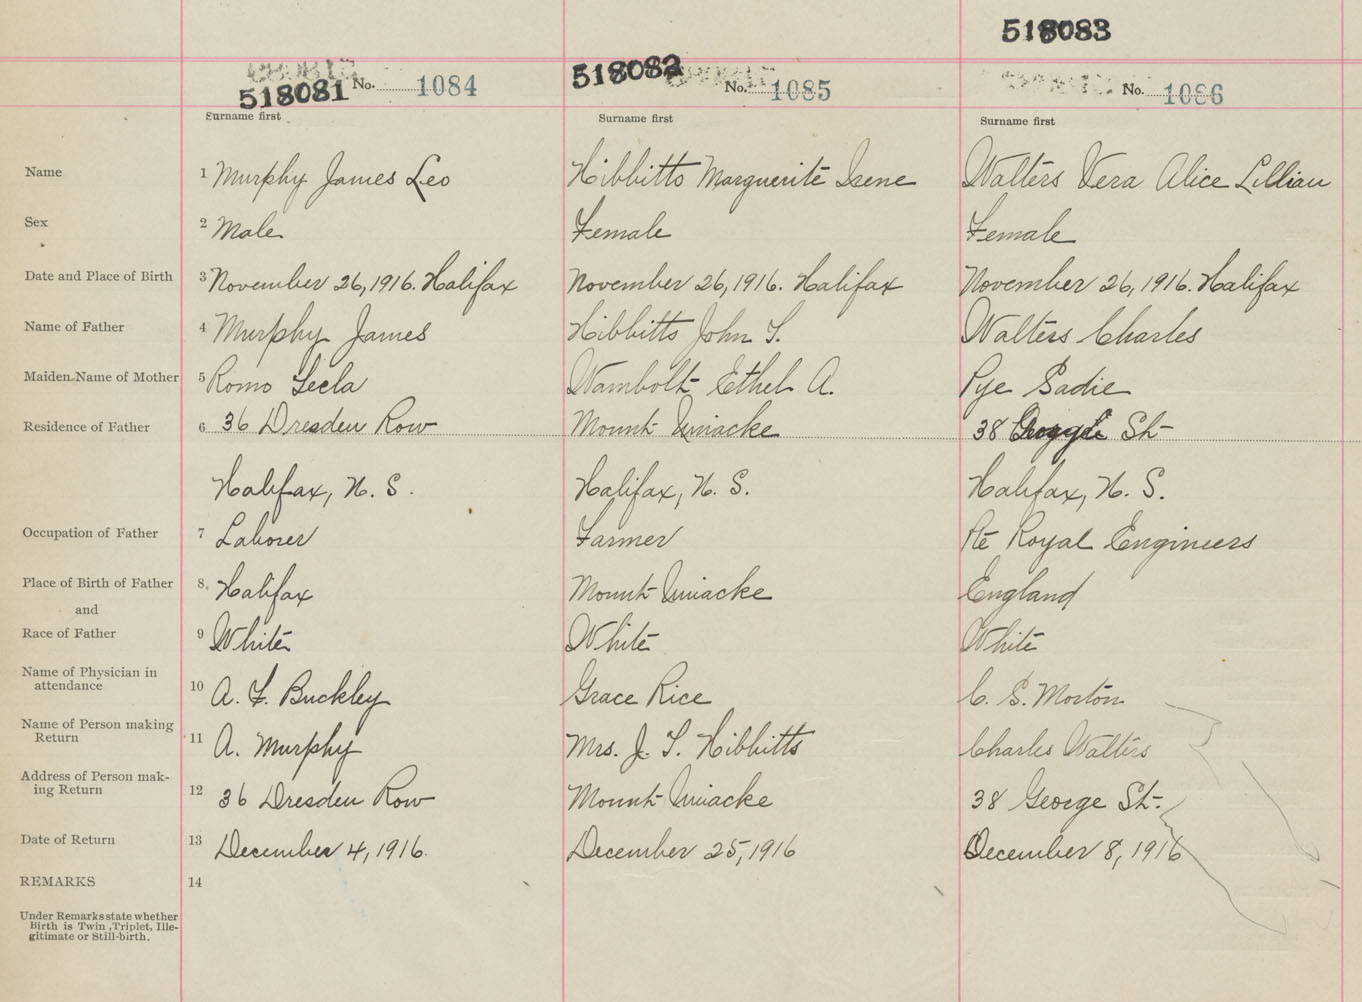 518083
518081 No. 1084
518082 No. 1085
No. 1086
Surname first Surname first Surname first
Name 1 Murphy James Leo Hibbitts Marguerite Irene Walters Vera Alice Lillian
Sex 2 Male Female Female
Date and Place of Birth 3 November 26, 1916. Halifax November 26, 1916. Halifax November 26, 1916. Halifax
Name of Father 4 Murphy James Hibbitts John T. Walters Charles
Maiden Name of Mother 5 Romo Tecla Wambolt Ethel A. Pye Sadie
Residence of Father 6 36 Dresden Row Mount Uniacke 38 St
Halifax, N. S. Halifax, N. S. Halifax, N. S.
Occupation of Father 7 Laborer Farmer Pte Royal Engineers
Place of Birth of Father 8 Halifax Mount Uniacke England
and
Race of Father 9 White White White
Name of Physician in
attendance 10 A. F. Buckley Grace Rice C. S. Morton
Name of Person making
Return 11 A. Murphy Mrs. J. T. Hibbitts Charles Walters
Address of Person mak-
ing Return 12 36 Dresden Row Mount Uniacke 38 George St.
Date of Return 13 December 4, 1916. December 25, 1916 December 8, 1916
REMARKS 14
Under Remarks state whether
Birth is Twin, Triplet, Ille-
gitimate or Still-birth.